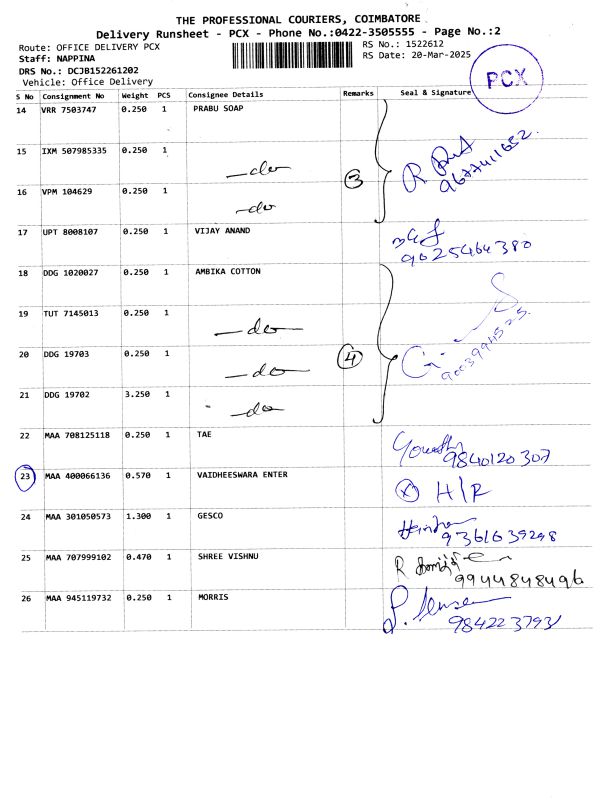 THE PROFESSIONAL COURIERS, COIMBATORE
Delivery Runsheet - PCX - Phone No.:0422-3505555 - Page No.:2
Route: OFFICE DELIVERY PCX RS No.: 1522612
Staff: NAPPINA RS Date: 20-Mar-2025
DRS No.: DCJB152261202
Vehicle: Office Delivery
PCX
S No Consignment No Weight PCS Consignee Details Remarks Seal & Signature
14 VRR 7503747 0.250 1 PRABU SOAP
15 IXM 507985335 0.250 1 —do
16 VPM 104629 0.250 1 —do
3 R 9677411652.
17 UPT 8008107 0.250 1 VIJAY ANAND
9025464380
18 DDG 1020027 0.250 1 AMBIKA COTTON
19 TUT 7145013 0.250 1 —do—
20 DDG 19703 0.250 1 —do—
4 9003994525.
21 DDG 19702 3.250 1 —do
22 MAA 708125118 0.250 1 TAE
9840120307
23 MAA 400066136 0.570 1 VAIDHEESWARA ENTER X H/R
24 MAA 301050573 1.300 1 GESCO
9361639248
25 MAA 707999102 0.470 1 SHREE VISHNU R
9944848496
26 MAA 945119732 0.250 1 MORRIS
984223793